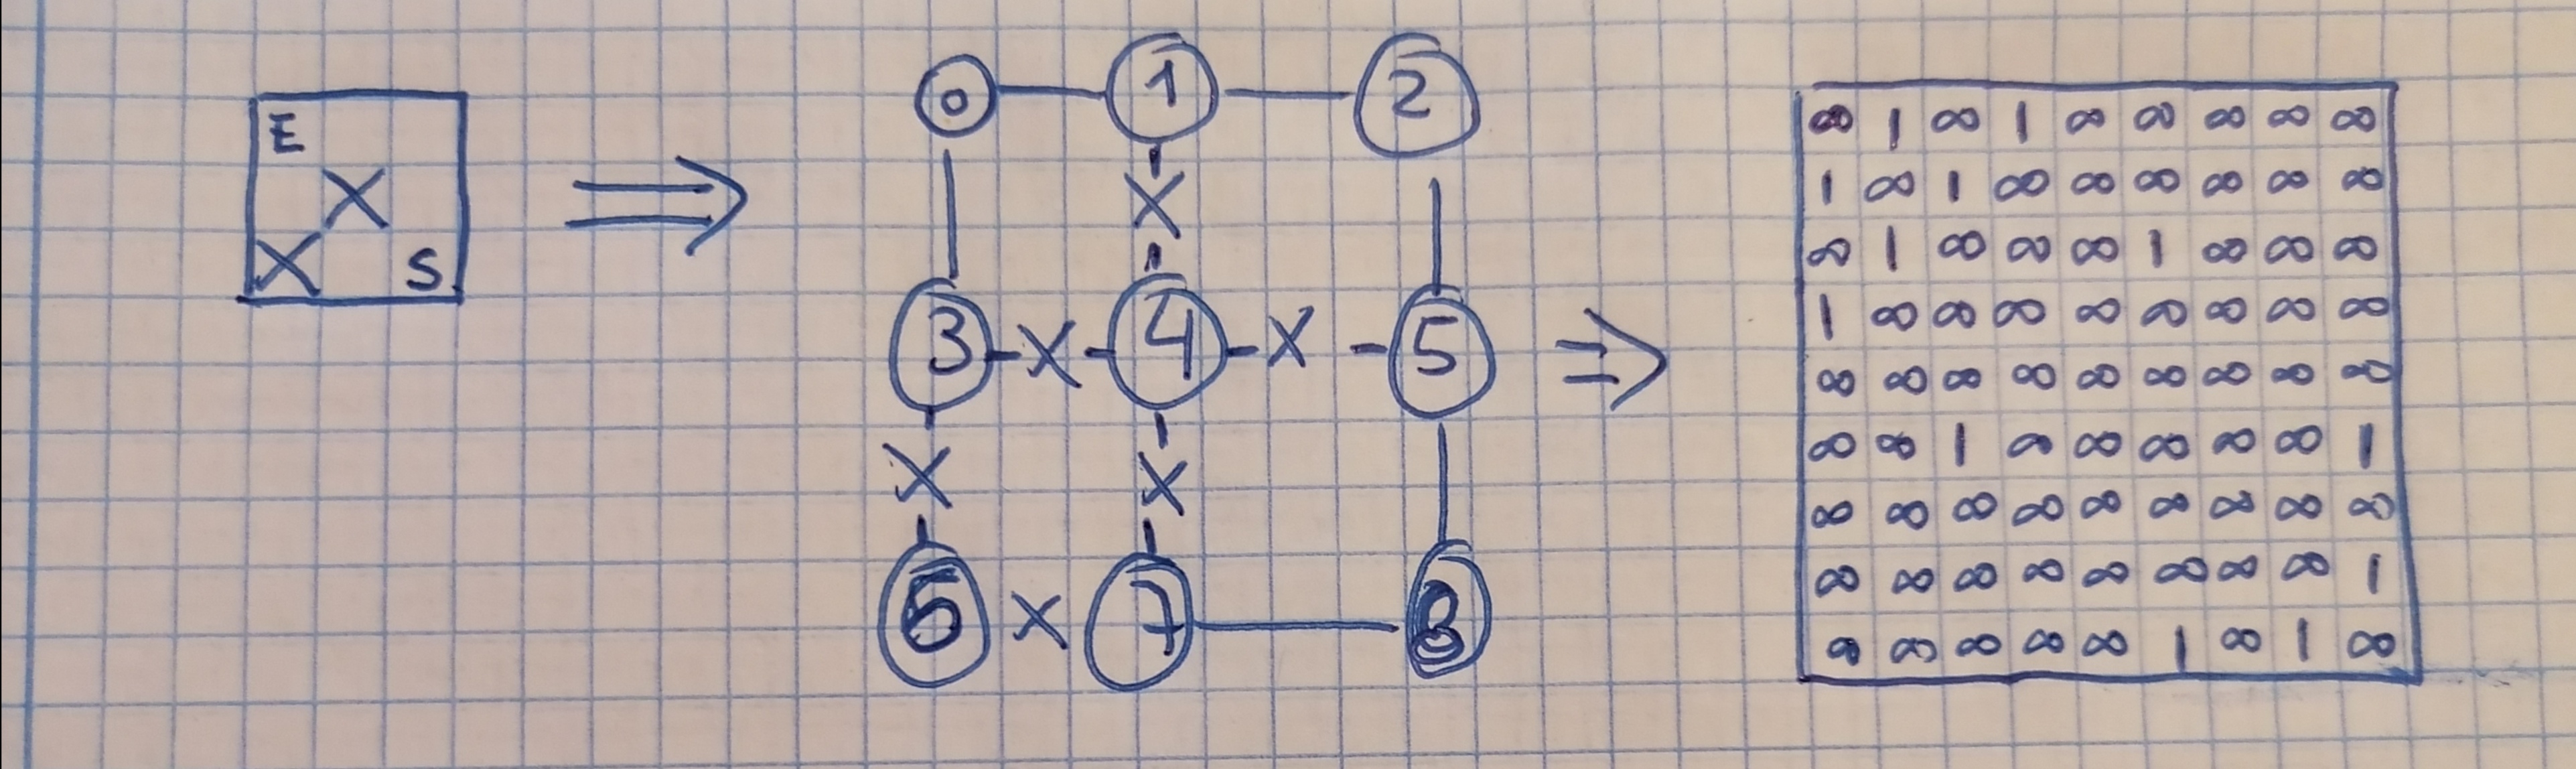 E
X
X S
0 1 2
X
3 X 4 X 5
X X
6 X 7 8
∞ 1 ∞ 1 ∞ ∞ ∞ ∞ ∞
1 ∞ 1 ∞ ∞ ∞ ∞ ∞ ∞
∞ 1 ∞ ∞ ∞ 1 ∞ ∞ ∞
1 ∞ ∞ ∞ ∞ ∞ ∞ ∞ ∞
∞ ∞ ∞ ∞ ∞ ∞ ∞ ∞ ∞
∞ ∞ 1 ∞ ∞ ∞ ∞ ∞ 1
∞ ∞ ∞ ∞ ∞ ∞ ∞ ∞ ∞
∞ ∞ ∞ ∞ ∞ ∞ ∞ ∞ 1
∞ ∞ ∞ ∞ ∞ 1 ∞ 1 ∞